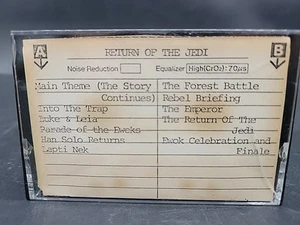 A
RETURN OF THE JEDI
B
Noise Reduction Equalizer High(CrO2):70μs
Main Theme (The Story
Continues)
Into The Trap
Luke & Leia
Parade of the Ewoks
Han Solo Returns
Lapti Nek
The Forest Battle
Rebel Briefing
The Emperor
The Return Of The
Jedi
Ewok Celebration and
Finale